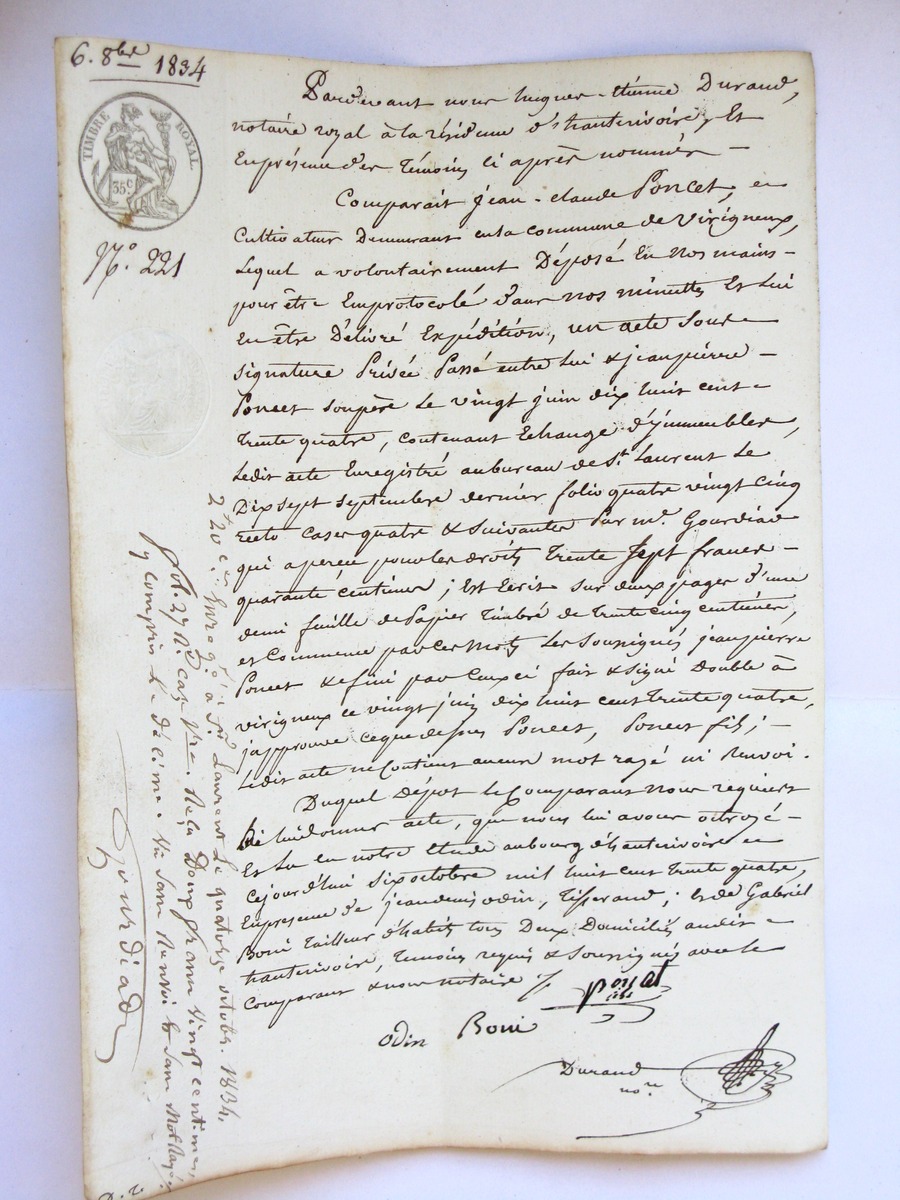 6. 8bre 1834
TIMBRE ROYAL
35c.
N.o 221
Pardevant nous hugues-étienne Durand,
notaire royal à la résidence d'hauterivoire, Et
En présence des témoins ci après nommés –
Comparait jean-claude Poncet,
Cultivateur Demeurant en la commune de Virigneux,
Lequel a volontairement Déposé En nos mains –
pour être Emprotocolé dans nos minuttes Et Lui
En être Délivré Expédition, un acte Sous
signature Privée Passé entre Lui & jeanpierre –
Poncet Son père Le vingt juin dix huit cent –
trente quatre, contenant Echange d'jmmeubles,
Ledit acte Enregistré au bureau de St. Laurent Le
Dix sept septembre dernier folio quatre vingt cinq
recto cases quatre & suivantes Par mr. Gourdiad
qui a perçu pour les droits trente sept francs –
quarante centimes ; Est Ecrit sur deux pages d'une
demi feuille de Papier timbré de trente cinq centimes,
et Commence par ces mots Les Soussignés jeanpierre
Poncet & fini par Ceux ci fait & signé Double à
virigneux ce vingt juin dix huit cent trente quatre,
j'approuve ce que dessus Poncet, Poncet fils ; –
Ledit acte ne Contient aucun mot rayé ni Renvoi.
Duquel Dépot le Comparant nous requiert
De lui donner acte, que nous lui avons octroyé –
Et Lu en notre Etude au bourg d'hauterivoire
Cejourd'hui six octobre mil huit cent trente quatre,
En présence de jean denis odin, Tisserand ; & de Gabriel
Boni tailleur d'habits tous Deux Domiciliés audit
hauterivoire, témoins requis & Soussignés avec le
comparant & nous notaire
ponset
odin Boni
Durand
nore
2f 20 c. Enregé. à St. Laurent Le quatorze octobre 1834,
fol. 27 Ro. case Reçu Deux francs vingt centimes,
y compris Le décime. Sans Renvoi & sans mot Rayé
Gourdiad